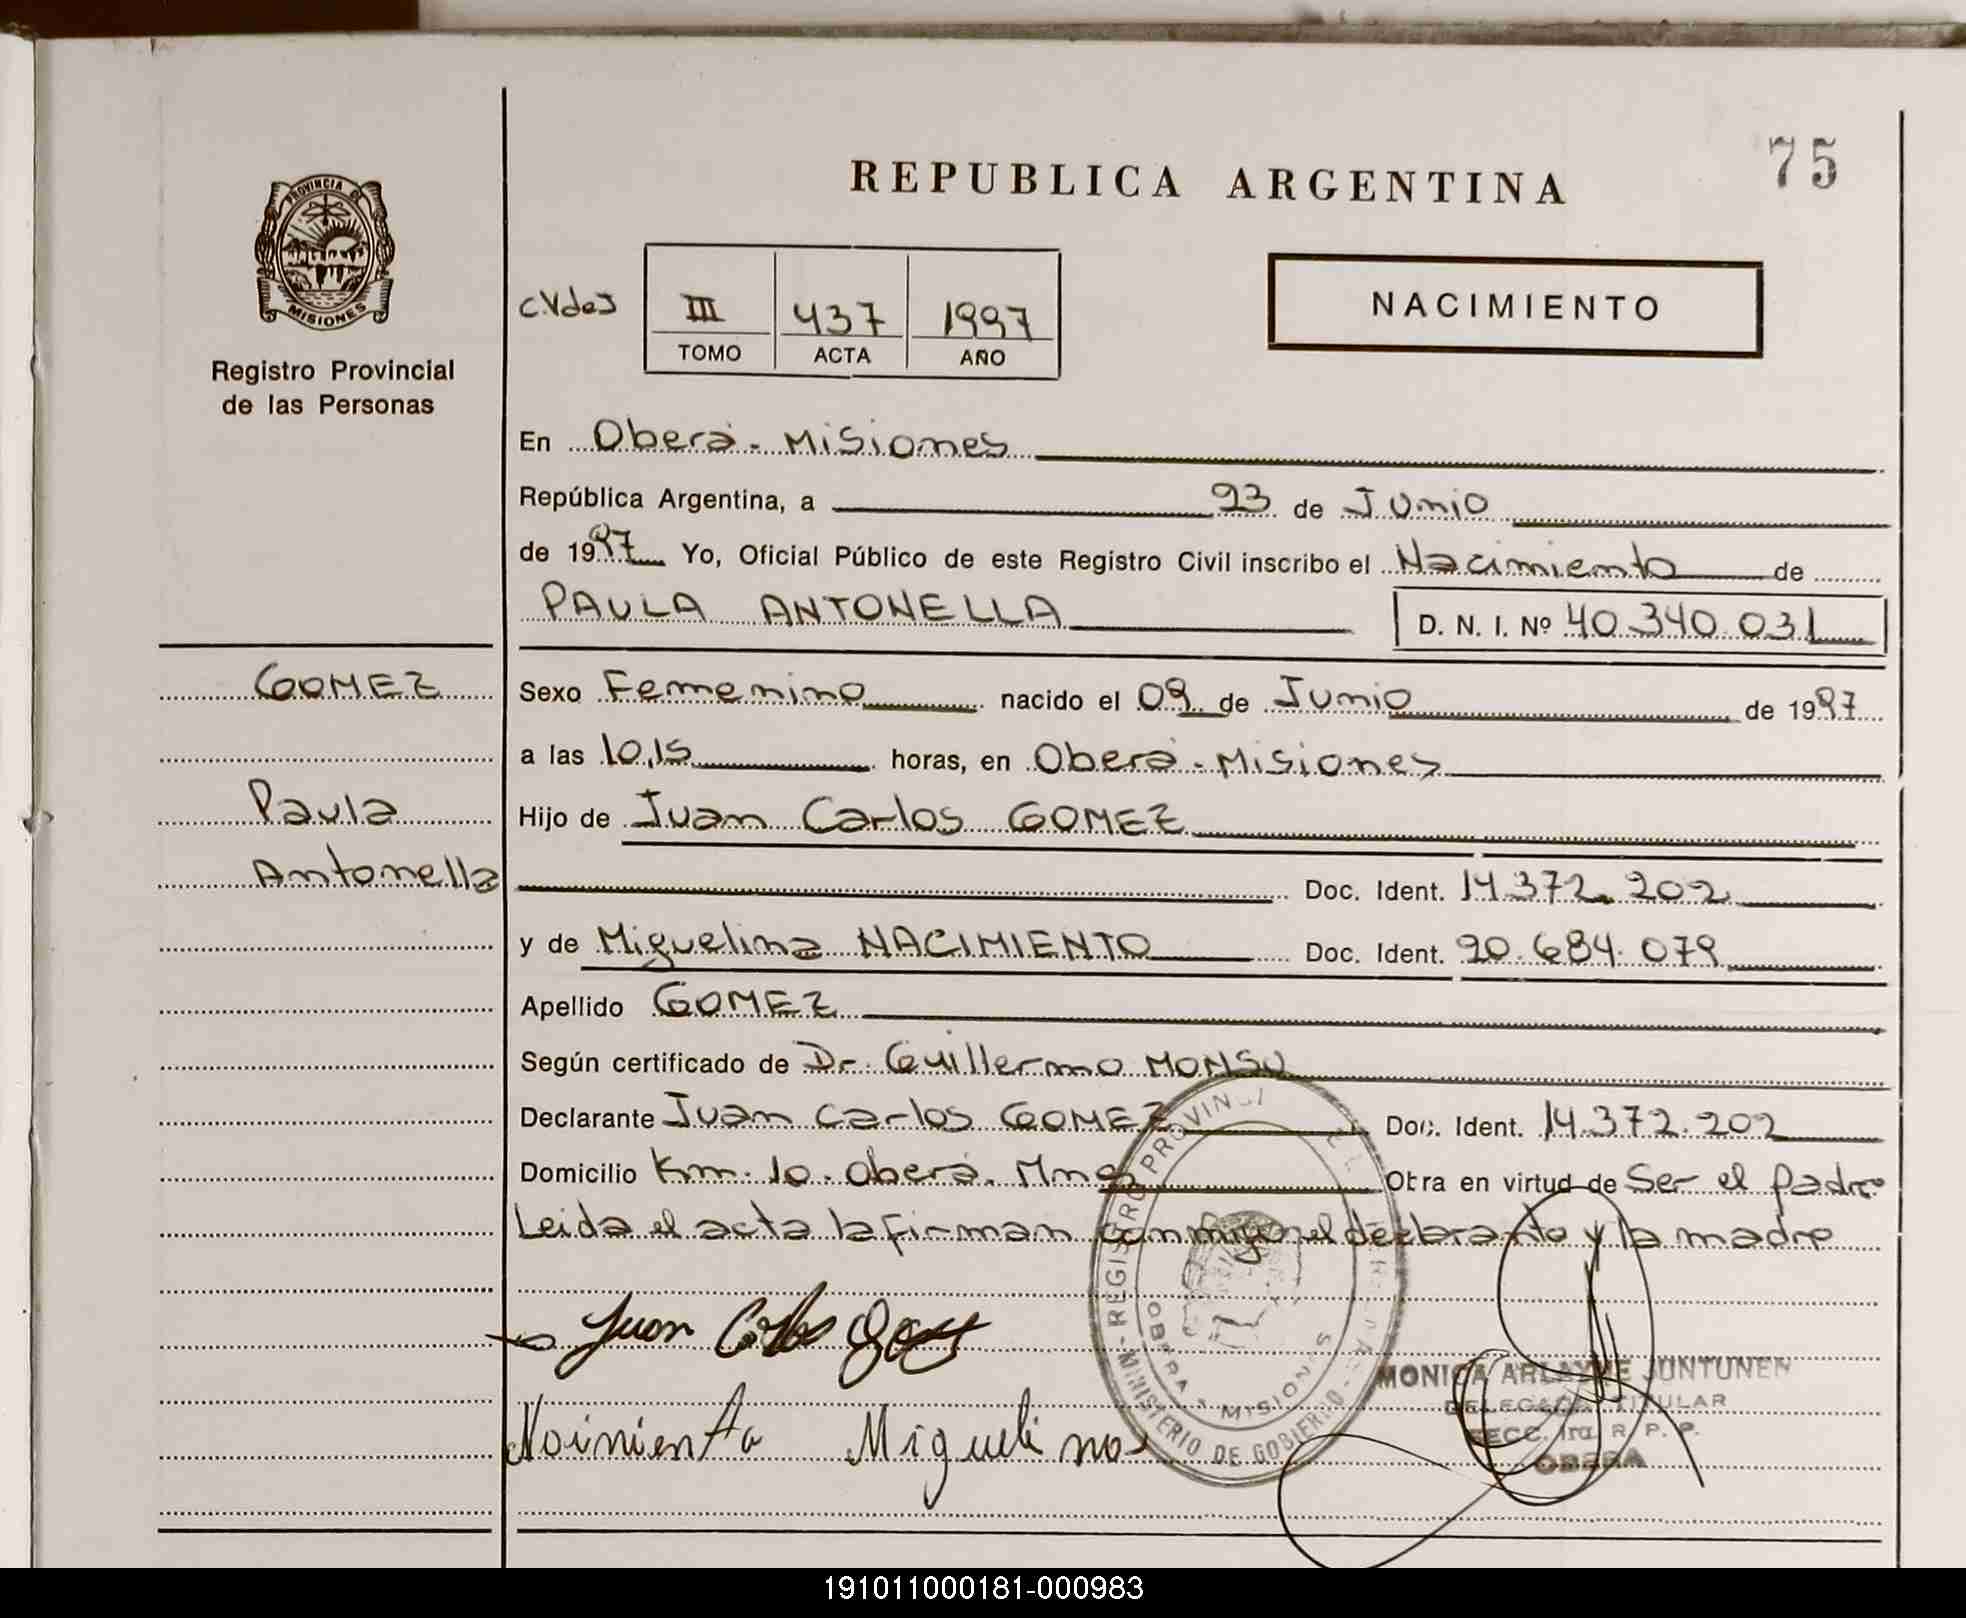 75
REPUBLICA ARGENTINA
PROVINCIA DE
MISIONES
Registro Provincial
de las Personas
C.VdeJ
III 437 1997
TOMO ACTA AÑO
NACIMIENTO
En Oberá - Misiones
República Argentina, a 23 de Junio
de 1997 Yo, Oficial Público de este Registro Civil inscribo el Nacimiento de
PAULA ANTONELLA D. N. I. Nº 40.340.031
GOMEZ
Sexo Femenino nacido el 09 de Junio de 1997
a las 10,15 horas, en Oberá - Misiones
Paula
Hijo de Juan Carlos GOMEZ
Antonella
Doc. Ident. 14.372.202
y de Miguelina NACIMIENTO Doc. Ident. 20.684.079
Apellido GOMEZ
Según certificado de Dr. Guillermo MONSU
Declarante Juan Carlos GOMEZ Doc. Ident. 14.372.202
Domicilio Km. 10. Oberá. Mnes Obra en virtud de Ser el padre
Leida el acta la firman conmigo el declarante y la madre
REGISTRO PROVINCI
OBERA MISIONES
MINISTERIO DE GOBIERNO
Juan Carlos
MONICA ARLAYNE JUNTUNEN
DELEGADA TITULAR
SECC. 1ra. R. P. P.
OBERA
Miguelina
191011000181-000983